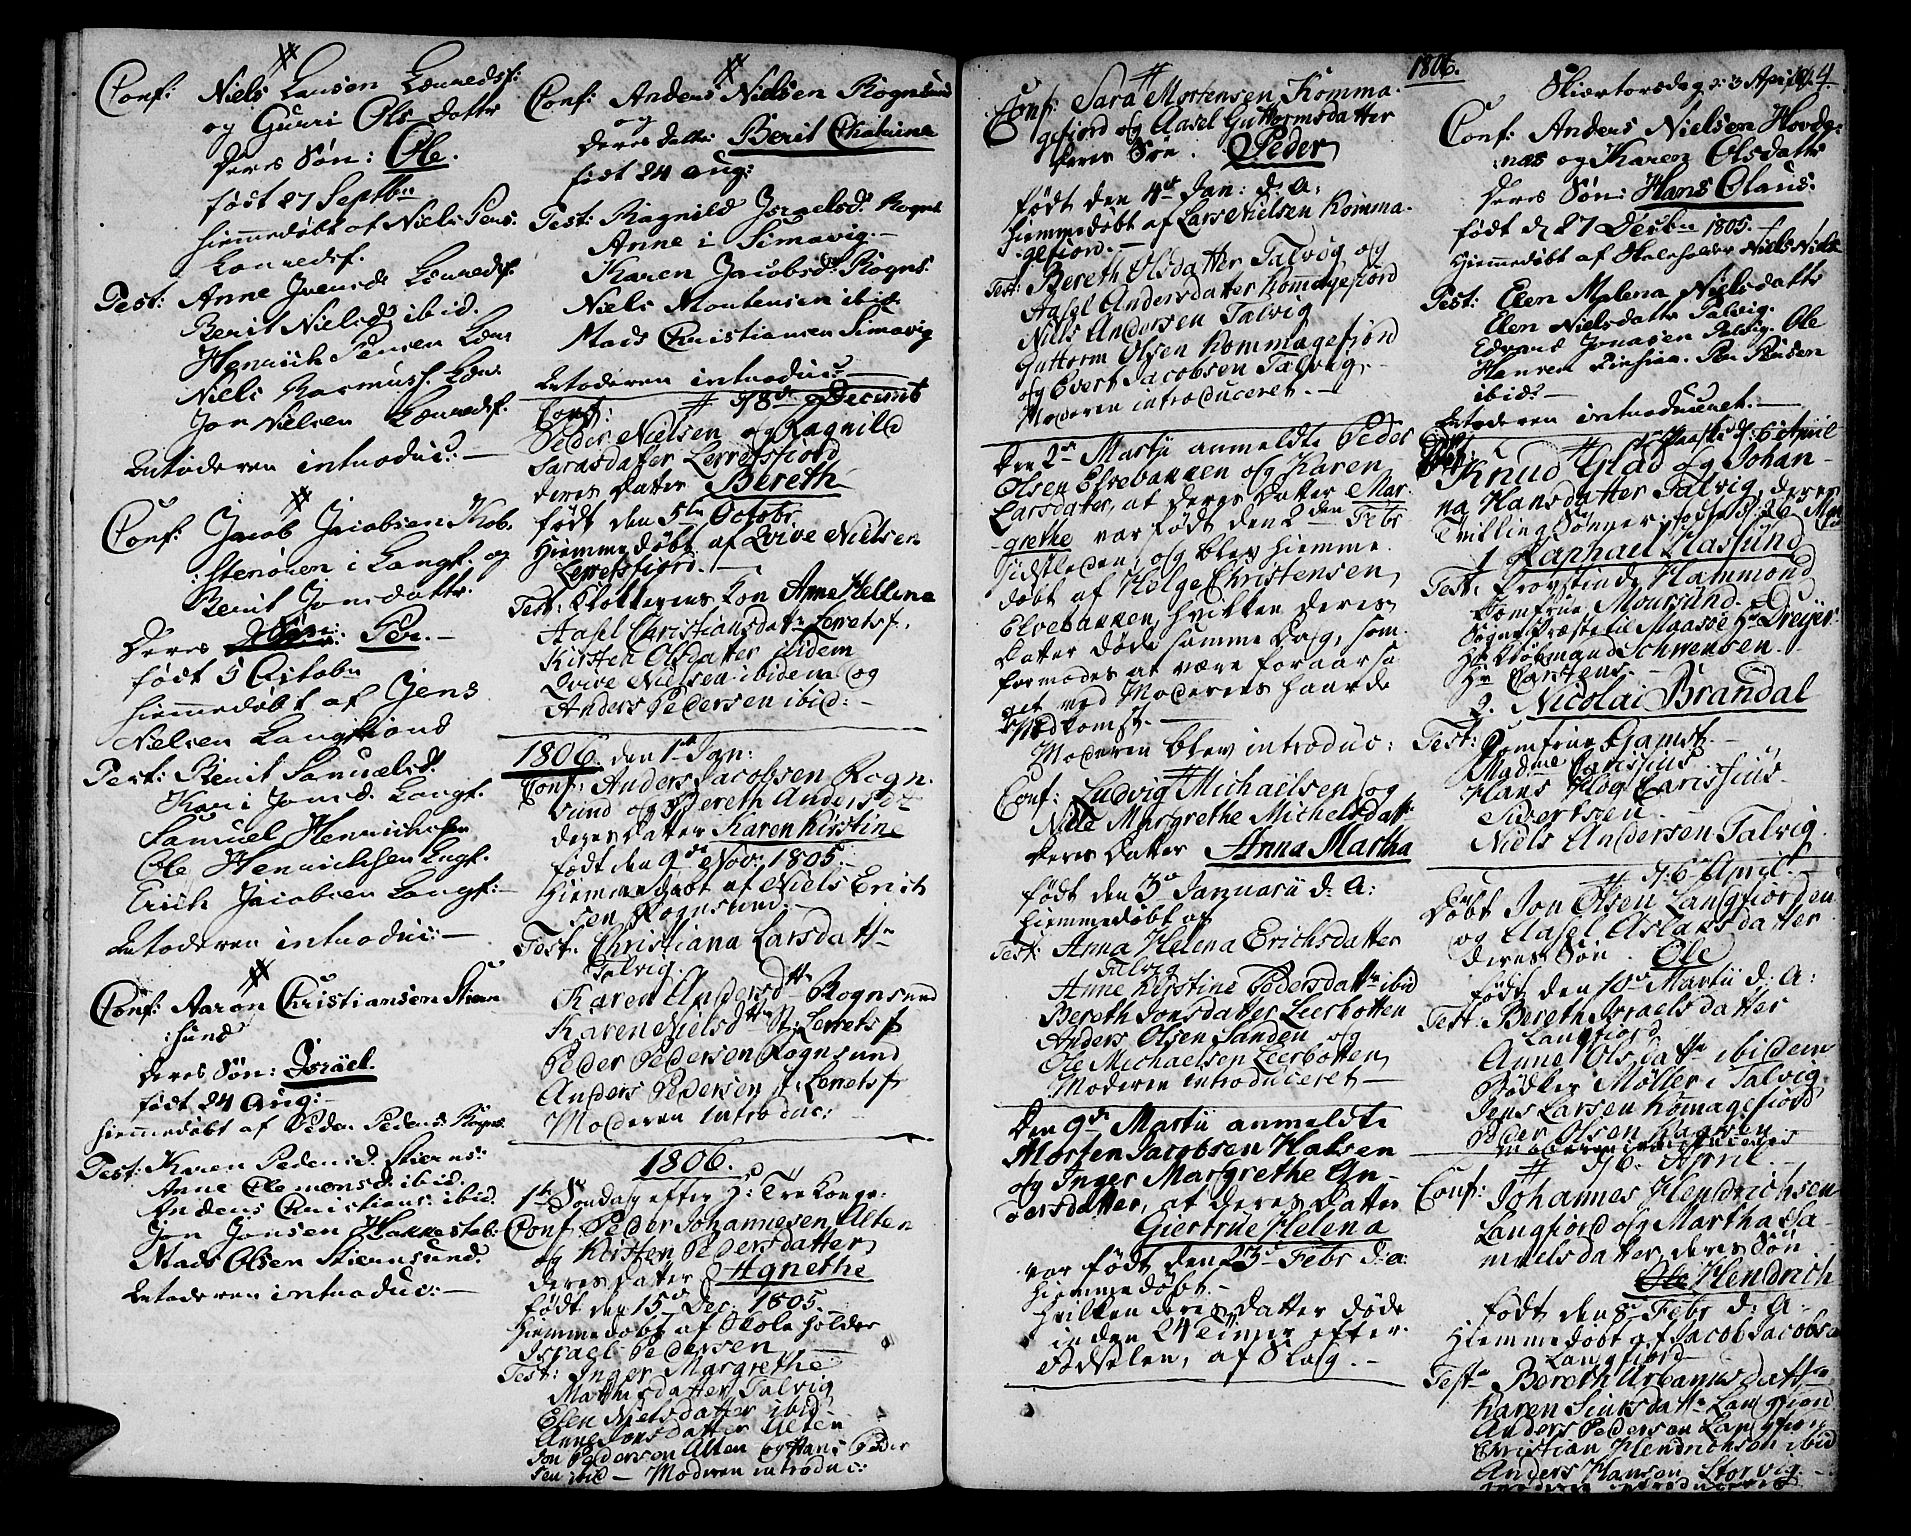 Conf: Niels Larsen Lerredsf:
og Gurri Ols Datter
Deres Søn: Ole.
født 27 Septbr
hiemmedøbt af Niels Jens:
Lerredsf.
Test: Anne Ivensd Lerredsf.
Berit Nielsd ibid.
Henrich Jensen Lerr
Niels Rasmuss. Lerr.
Jon Nielsen Lerredsf.
Moderen introduc: —
Conf: Jacob Jacobsen Kob.
sterioren i Langf. og
Berit Jonsdatter
Deres Søn: Per. —
født 5 Octobr
hiemmedøbt af Jens
Nielsen Langfiord
Test: Berit Samuelsd.
Kari Jonsd. Langf.
Samuel Henrichsen
Ole Henrichsen Langf.
Erich Jacobsen Langf: —
Moderen introduc: —
Conf: Aaron Christiansen Stiern
sund
Deres Søn: Israel.
født 24 Aug: —
hiemmedøbt af Peder Peders: Rogns.
Test: Karen Pedersd. Stierns:
Anne Clemensd. ibid.
Anders Christians: ibid.
Jon Jonsen Hakkestab:
Mads Olsen Stiernsund.
Moderen introduc: —
Conf: Anders Nielsen Rognsund
og
Deres Datter: Berit Chatrine
født 24 Aug:
Test: Ragnild Israelsd. Rogns
Anne i Simavig. —
Karen Jacobsd. Rogns:
Niels Mortensen ibid.
Mads Christiansen Simavig
Moderen introduc: —
Conf: # 8de Decemb
Peder Nielsen og Ragnild
Sarasdatter Lerretsfiord
deres Datter Bereth
født den 5te Octobr
Hiemmedøbt af Qvive Nielsen
Lerretsfiord. —
Test: Klokkerens Kon Anne Hellene
Aasel Christiansdatter Lerretsf.
Kirsten Olsdatter ibidem
Qvive Nielsen ibidem og
Anders Pedersen ibid: —
1806 den 1te Jan:
Conf: Anders Jacobsen Rogn.
sund og Bereth Andersdt
deres Datter Karen Kirstine
født den 9de Nov: 1805.
Hiemmedøbt af Niels Erich
sen Rognsund. —
Test: Christiana Larsdatter
Talvig.
Karen Andersdtr Rognsund
Karen Nielsdtr St: Lerretsf
Peder Pedersen Rognsund
Anders Pedersen St. Lerretsf
Moderen introduc:
1806.
1te Søndag efter H: Tre Konge:
Conf Peder Johannesen Alten
og Kirsten Pedersdatter
deres Datter Agnethe
født den 15de Dec. 1805.
Hiemmedøbt af Skoleholder
Israel Pedersen
Test: Inger Margrethe
Matthisdatter Talvig
Elen Nielsdatter ibid —
Anne Jonsdatter Alten
Jon Pedersen Alten og Hans Peder
sen ibid — Moderen introduc:
1806.
Conf: Sara Mortensen Komma-
gefiord og Aasel Guttormsdatter
deres Søn. Peder
født den 4de Jan: d: A:
Hiemmedøbt af Lars Nielsen Komma-
gefiord. —
Test: Bereth Olsdatter Talvig og
Aasel Andersdatter Kommagefiord
Niels Andersen Talvig
Guttorm Olsen Kommagefiord
og Evert Jacobsen Talvig. —
Moderen introduceret. —
Den 2de Martii anmeldte Peder
Olsen Elvebakken og Karen
Larsdatter, at deres Datter Mar.
grethe var født den 2den Febr
sidstleden, og blev hiemme
døbt af Helge Christensen
Elvebakken, hvilken deres
Datter døde samme Dag, som
formodes at være foraarsa
get ved Moderens haarde
Nedkomst. —
Moderen blev introduc:
Conf: Ludvig Michaelsen og
Nille Margrethe Michelsdatter
deres Datter Anna Martha
født den 3de Januarii d: A:
Hiemmedøbt af
Test: Anna Helena Erichsdatter
Talvig
Anne Kirstine Pedersdatter ibid
Bereth Jonsdatter Leerbotten
Anders Olsen Sanden og
Ole Michaelsen Leerbotten
Moderen introduceret —
Den 9de Martii anmeldte
Morten Jacobsen Halsen
og Inger Margrethe An-
dersdatter, at deres Datter
Giertrue Helena
var født den 23de Febr d: a:
Hiemmedøbt. —
Hvilken deres Datter døde
inden 24 Timer efter
Fødselen, af Slag. —
Skiertorsdag d: 3 April
Conf: Anders Nielsen Hovdg:
næs og Karen Olsdatter
Deres Søn: Hans Olaus.
født d 27 Decbr 1805. —
Hiemmedøbt af Skoleholder Niels Niels
Test: Elen Malena Nielsdatter
Elen Nielsdatter Talvig.
Edvard Jonasen Talvig. Ole
Hansen
ibid. —
Moderen introduceret. —
Conf: # 1 Paaske d: 6 April
Knud Glad og Johan-
na Hansdatter Talvig, deres
Tvilling Sønner, fødsel d: 26 Mar
1. Raphael Haslund
Test: Provstinde Hammond
Jomfrue Moursund.
Sognepræst til Maasøe Hr Dreyer:
Hr Kiøbmand Schwensen.
Hr Carstens.
2. Nicolai Brandal
Test: Jomfrue Gamst. —
Madme Carisius
Hans Høg Carisius
Sivertsen.
Niels Andersen Talvig.
# 6 April.
Døbt Jon Olsen Langfiorden
og Aasel Aslaksdatter
deres Søn. Ole
født den 10de Martii d: A:
Test. Bereth Israelsdatter
Langfiord
Anne Olsdatter ibidem
Bødker Møller i Talvig.
Jens Larsen Komagefiord
Peder Olsen
Moderen introduceret
# 6. April
Conf: Johannes Hendrichsen
Langfiord og Martha Sa-
muelsdatter, deres Søn
Ole Hendrich
født den 8de Febr d: A:
Hiemmedøbt af Jacob Jacobsen
Langfiord
Test Bereth Urbanusdatter
Karen Datter Langfiord
Anders Pedersen Langfiord
Christian Hendrichsen ibid
Anders Hansen Storvig. —
Moderen introduceret